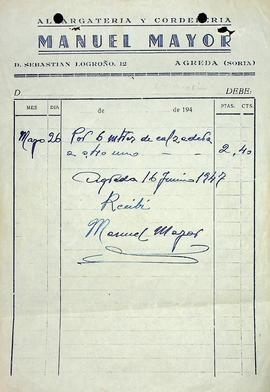 ALPARGATERIA Y CORDELERIA
MANUEL MAYOR
D. SEBASTIAN LOGROÑO, 12 AGREDA (SORIA)
D DEBE:
MES DIA de de 194 PTAS. CTS.
Mayo 26 Por 6 de
2,40
Agreda 16 Junio 1947
Recibí
Manuel Mayor